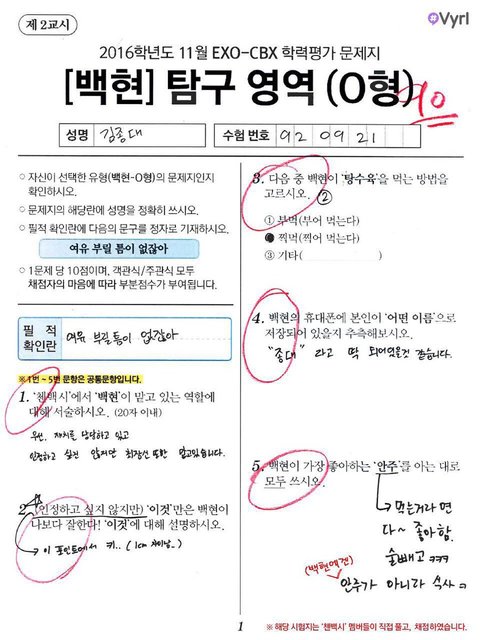 제 2교시
#Vyrl
2016학년도 11월 EXO-CBX 학력평가 문제지
[백현] 탐구 영역 (O형)
90
성명 김종대 수험 번호 920921
○ 자신이 선택한 유형(백현-O형)의 문제지인지
확인하시오.
○ 문제지의 해당란에 성명을 정확히 쓰시오.
○ 필적 확인란에 다음의 문구를 정자로 기재하시오.
여유 부릴 틈이 없잖아
○ 1문제 당 10점이며, 객관식/주관식 모두
채점자의 마음에 따라 부분점수가 부여됩니다.
필 적
확인란
여유 부릴 틈이 없잖아
※ 1번 ~ 5번 문항은 공통문항입니다.
1. '첸백시'에서 '백현'이 맡고 있는 역할에
대해 서술하시오. (20자 이내)
우선, 재치를 담당하고 있고
인정하고 싶진 않지만 최장신 또한 맡고있습니다.
2. '인정하고 싶지 않지만) '이것'만은 백현이
나보다 잘한다! '이것'에 대해 설명하시오.
이 포인트에서 키.. (1cm 차이남)
3. 다음 중 백현이 '탕수육'을 먹는 방법을
고르시오. ②
① 부먹(부어 먹는다)
② 찍먹(찍어 먹는다)
③ 기타( )
4. 백현의 휴대폰에 본인이 '어떤 이름'으로
저장되어 있을지 추측해보시오.
"종대" 라고 딱 되어있을것 같습니다.
5. 백현이 가장 좋아하는 '안주'를 아는 대로
모두 쓰시오.
먹는거라면
다~ 좋아함.
술빼고 ㅋㅋㅋ
(백현에겐)
안주가 아니라 식사 ㅁ
1
※ 해당 시험지는 '첸백시' 멤버들이 직접 풀고, 채점하였습니다.